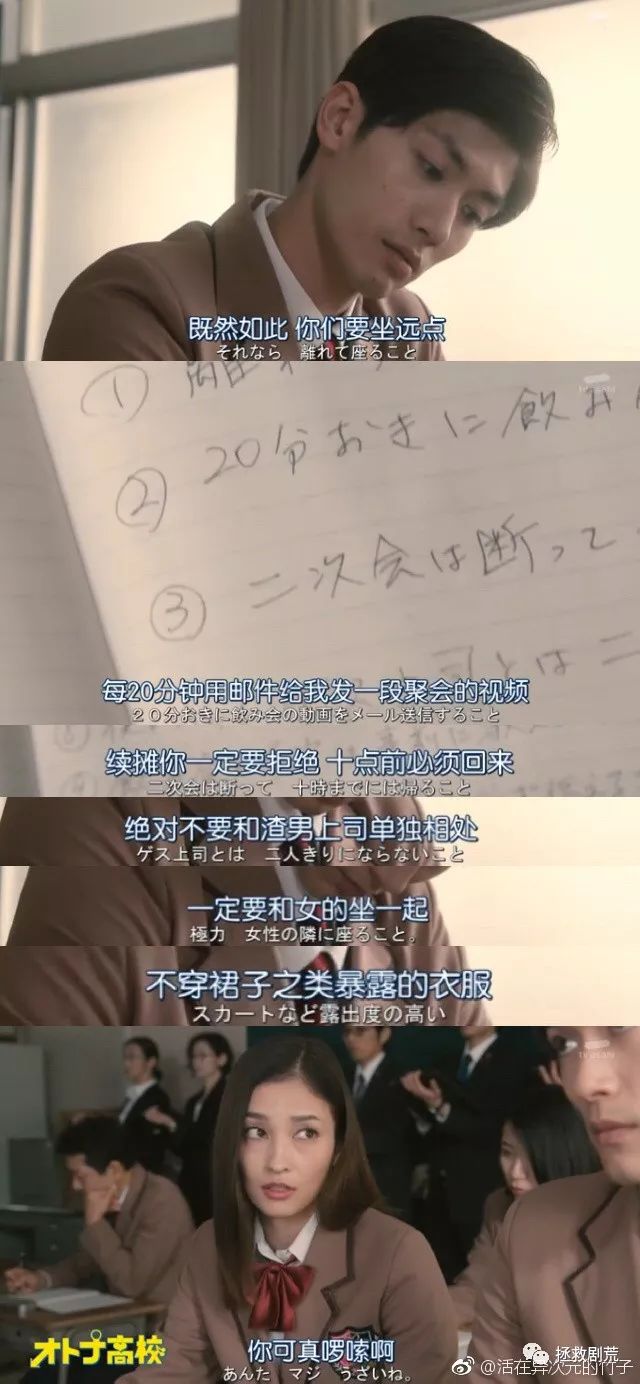 既然如此 你们要坐远点
それなら 離れて座ること
①
tv asahi
② 20分おきに飲み
③ 二次会は断って
上司とは二
每20分钟用邮件给我发一段聚会的视频
２０分おきに飲み会の動画をメール送信すること
续摊你一定要拒绝 十点前必须回来
二次会は断って 十時までには帰ること
绝对不要和渣男上司单独相处
ゲス上司とは 二人きりにならないこと
一定要和女的坐一起
極力 女性の隣に座ること。
不穿裙子之类暴露的衣服
スカートなど露出度の高い
tv asahi
オトナ高校
你可真啰嗦啊
あんた マジ うざいね。
拯救剧荒
@活在异次元的竹子